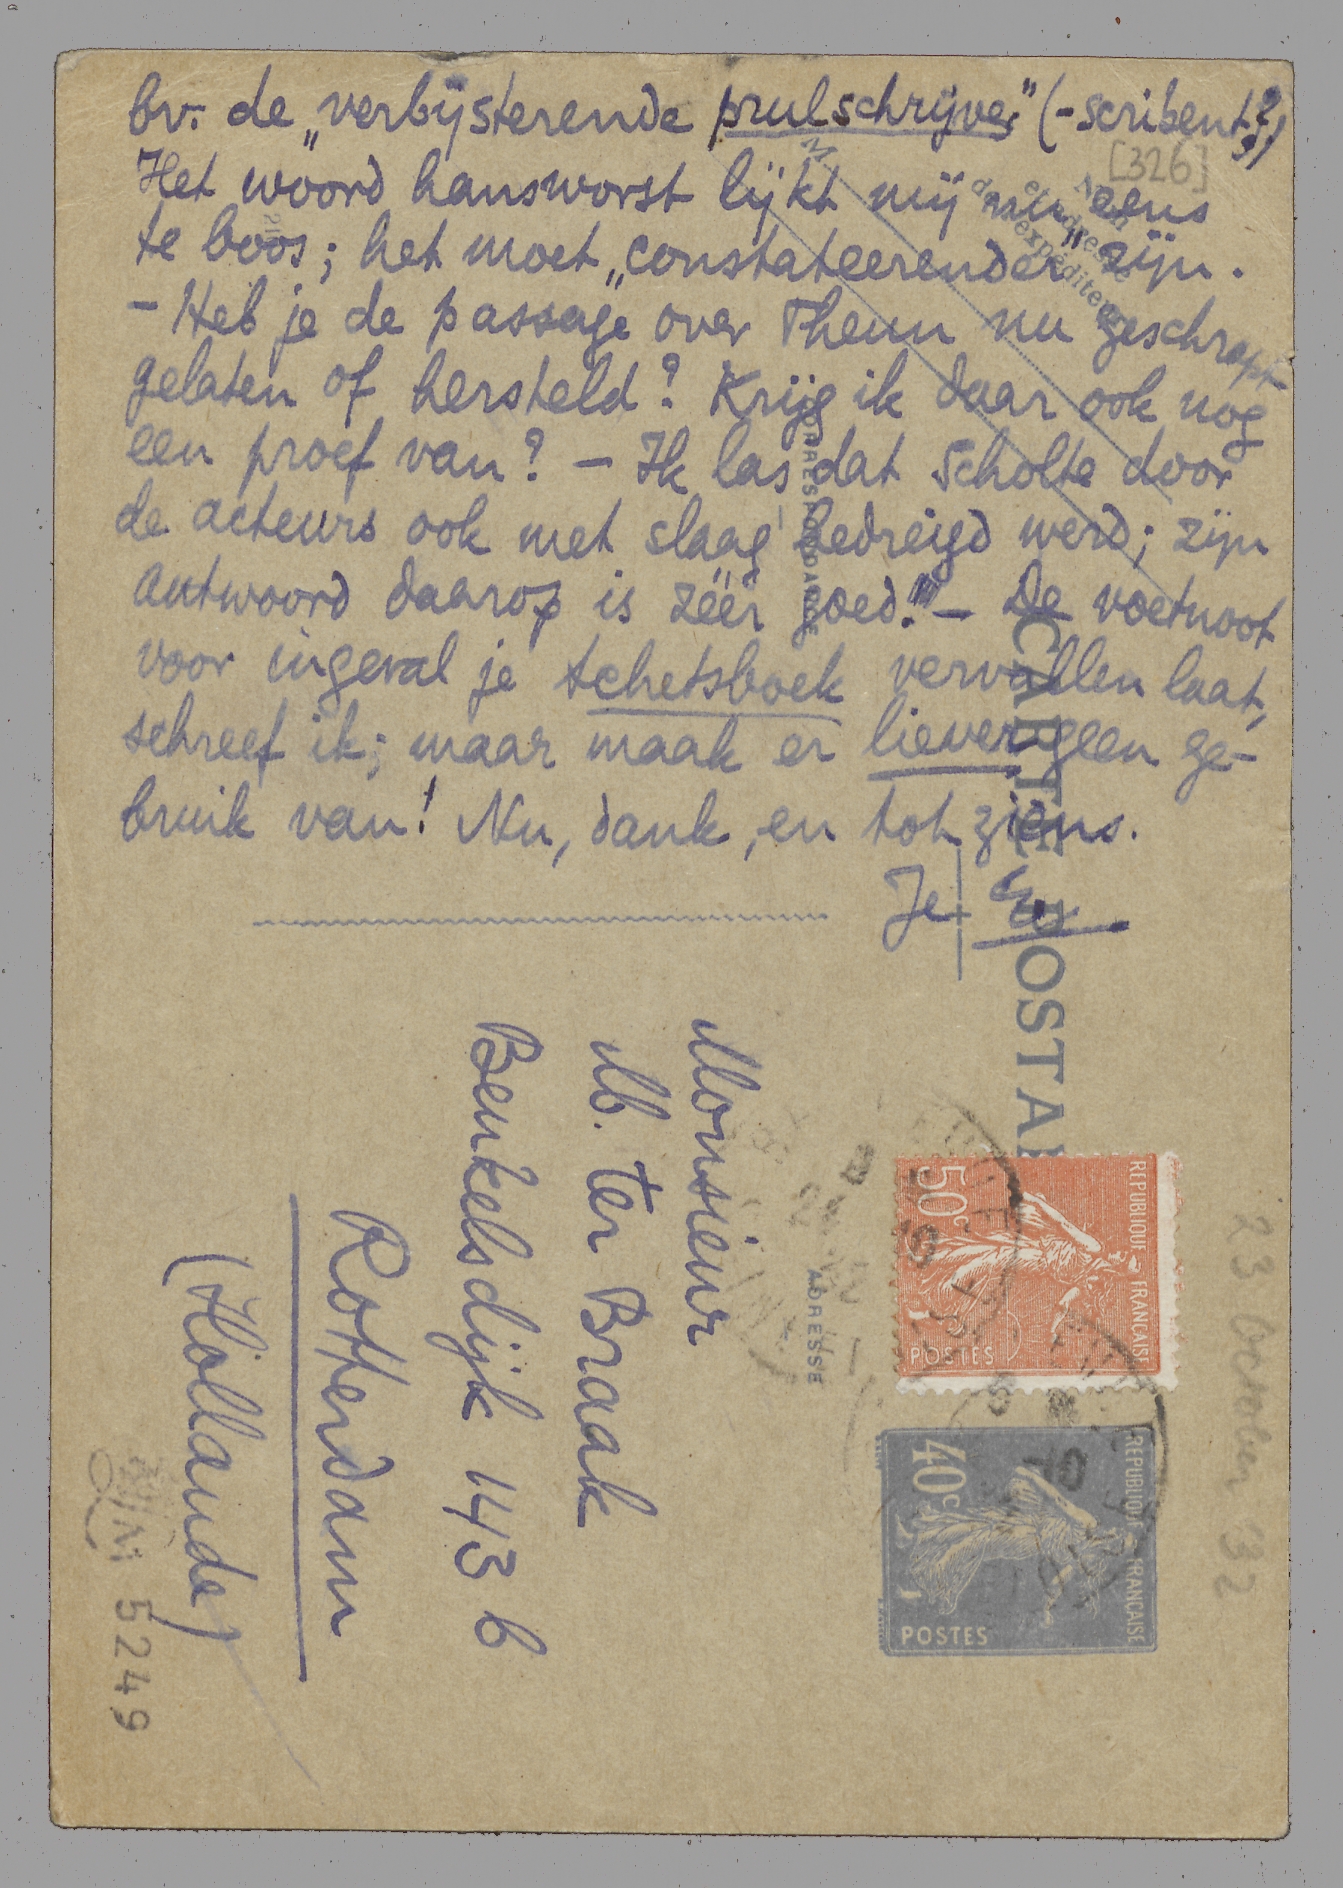 bv. de „verbijsterende prulschrijver" (-scribent?)
[326]
Het woord hansworst lijkt mij nu eens
te boos; het moet „constateerender" zijn.
- Heb je de passage over Theun nu geschrapt
gelaten of hersteld? Krijg ik daar ook nog
een proef van? - Ik las dat Scholte door
de acteurs ook met slaag bedreigd werd; zijn
antwoord daarop is zéér goed!" - De voetnoot
voor ingeval je schetsboek vervallen laat,
schreef ik; maar maak er liever geen ge-
bruik van! Nu, dank, en tot ziens.
Je
Nom
et adresse
de l'expéditeur
CORRESPONDANCE
CARTE POSTALE
ADRESSE
Monsieur
M. ter Braak
Beukelsdijk 143 b
Rotterdam
(Hollande)
REPUBLIQUE FRANÇAISE
50c
POSTES
REPUBLIQUE FRANÇAISE
40c
POSTES
23 October 32
5249